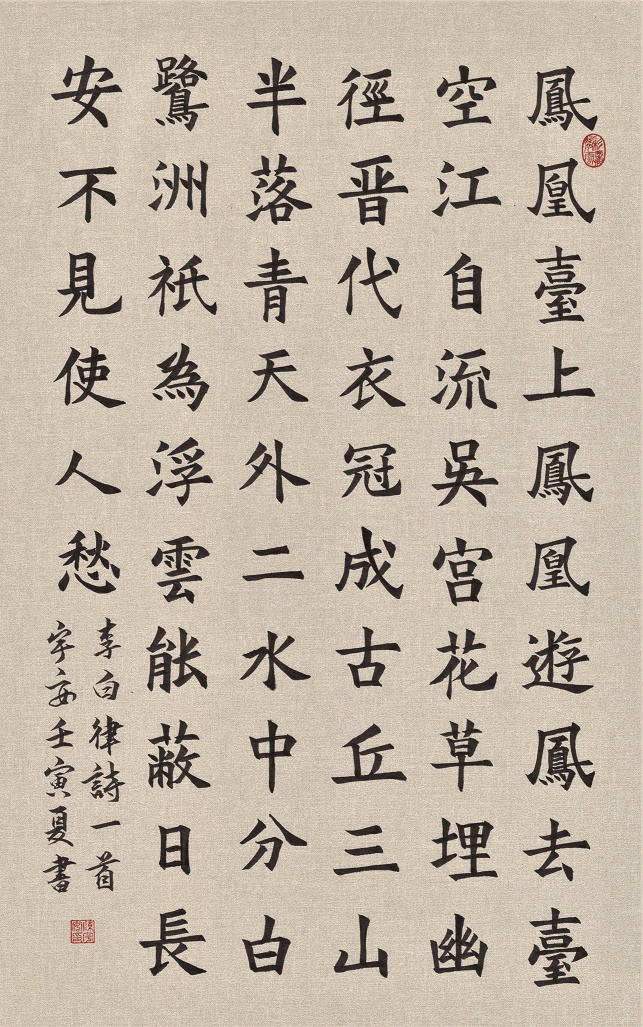 鳳凰臺上鳳凰遊鳳去臺
空江自流吳宮花草埋幽
徑晋代衣冠成古丘三山
半落青天外二水中分白
鷺洲祇為浮雲能蔽日長
安不見使人愁
李白律詩一首
壬寅夏書